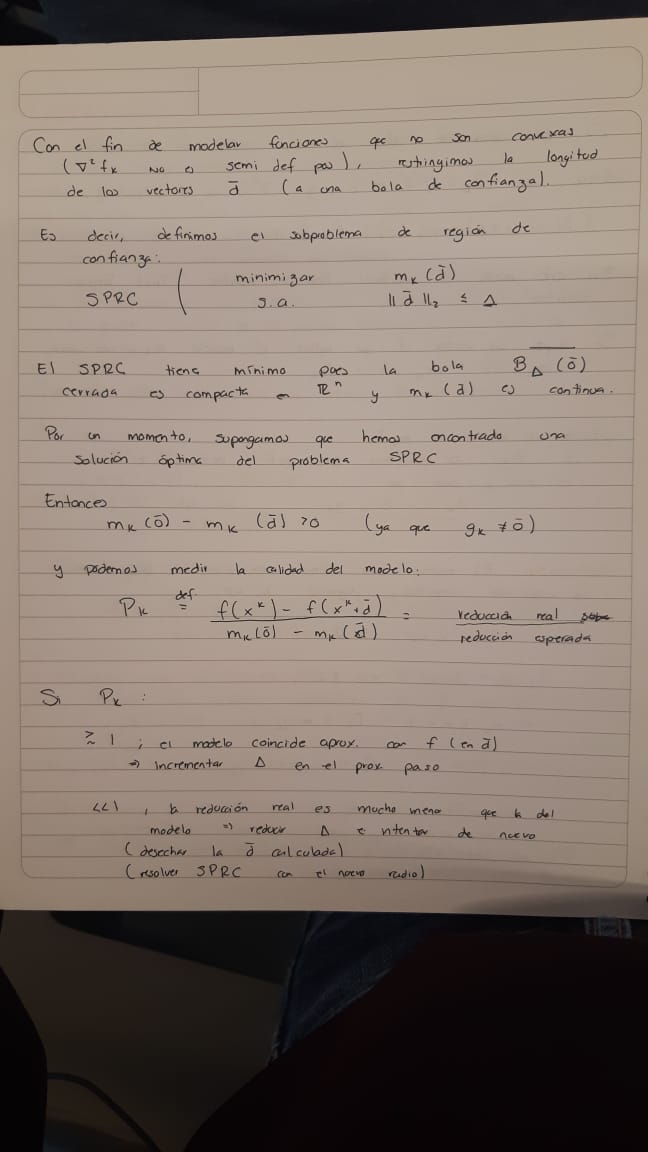 Con el fin de modelar funciones que no son convexas
(∇²fₖ no es semi def pos), restringimos la longitud
de los vectores d̄ (a una bola de confianza).
Es decir, definimos el subproblema de región de
confianza:
SPRC ( minimizar mₖ(d̄)
s.a. ||d̄||₂ ≤ Δ
El SPRC tiene mínimo pues la bola B_Δ(ō)
cerrada es compacta en ℝⁿ y mₖ(d̄) es continua.
Por un momento, supongamos que hemos encontrado una
solución óptima del problema SPRC
Entonces
mₖ(ō) - mₖ(d̄) > 0 (ya que gₖ ≠ ō)
y podemos medir la calidad del modelo:
Pₖ def= (f(xᵏ) - f(xᵏ + d̄)) / (mₖ(ō) - mₖ(d̄)) = reducción real / reducción esperada
Si Pₖ :
≳ 1 ; el modelo coincide aprox. con f (en d̄)
⇒ Incrementar Δ en el prox. paso
<<1 , la reducción real es mucho menor que la del
modelo ⇒ reducir Δ e intentar de nuevo
(desechar la d̄ calculada)
(resolver SPRC con el nuevo radio)